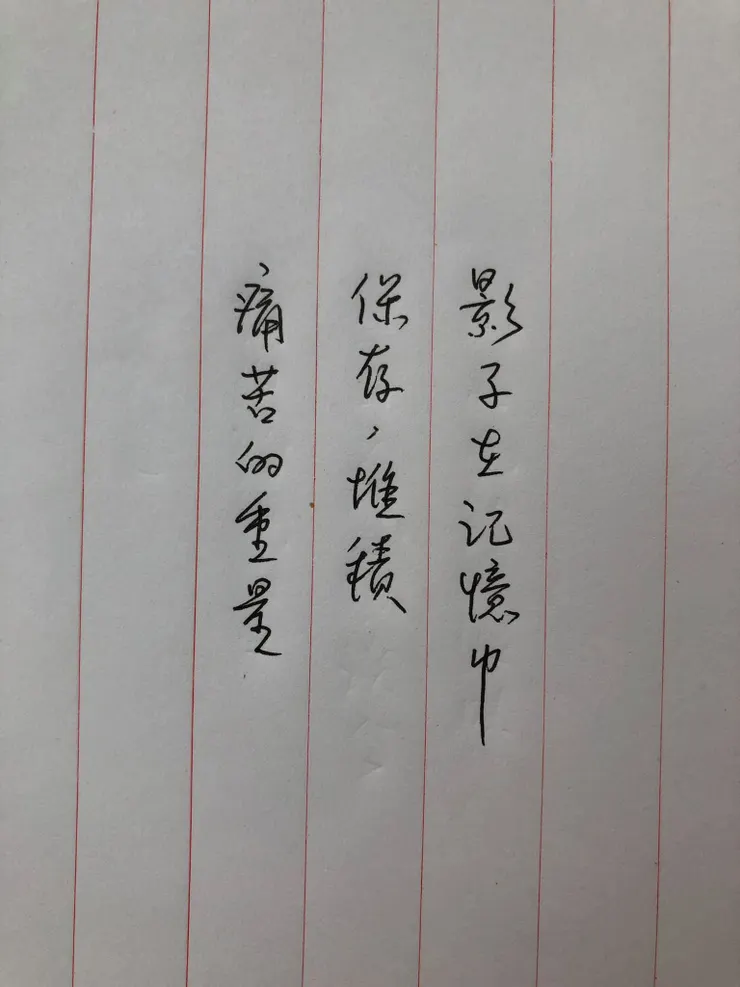 影子在记憶中
保存，堆積
痛苦的重量